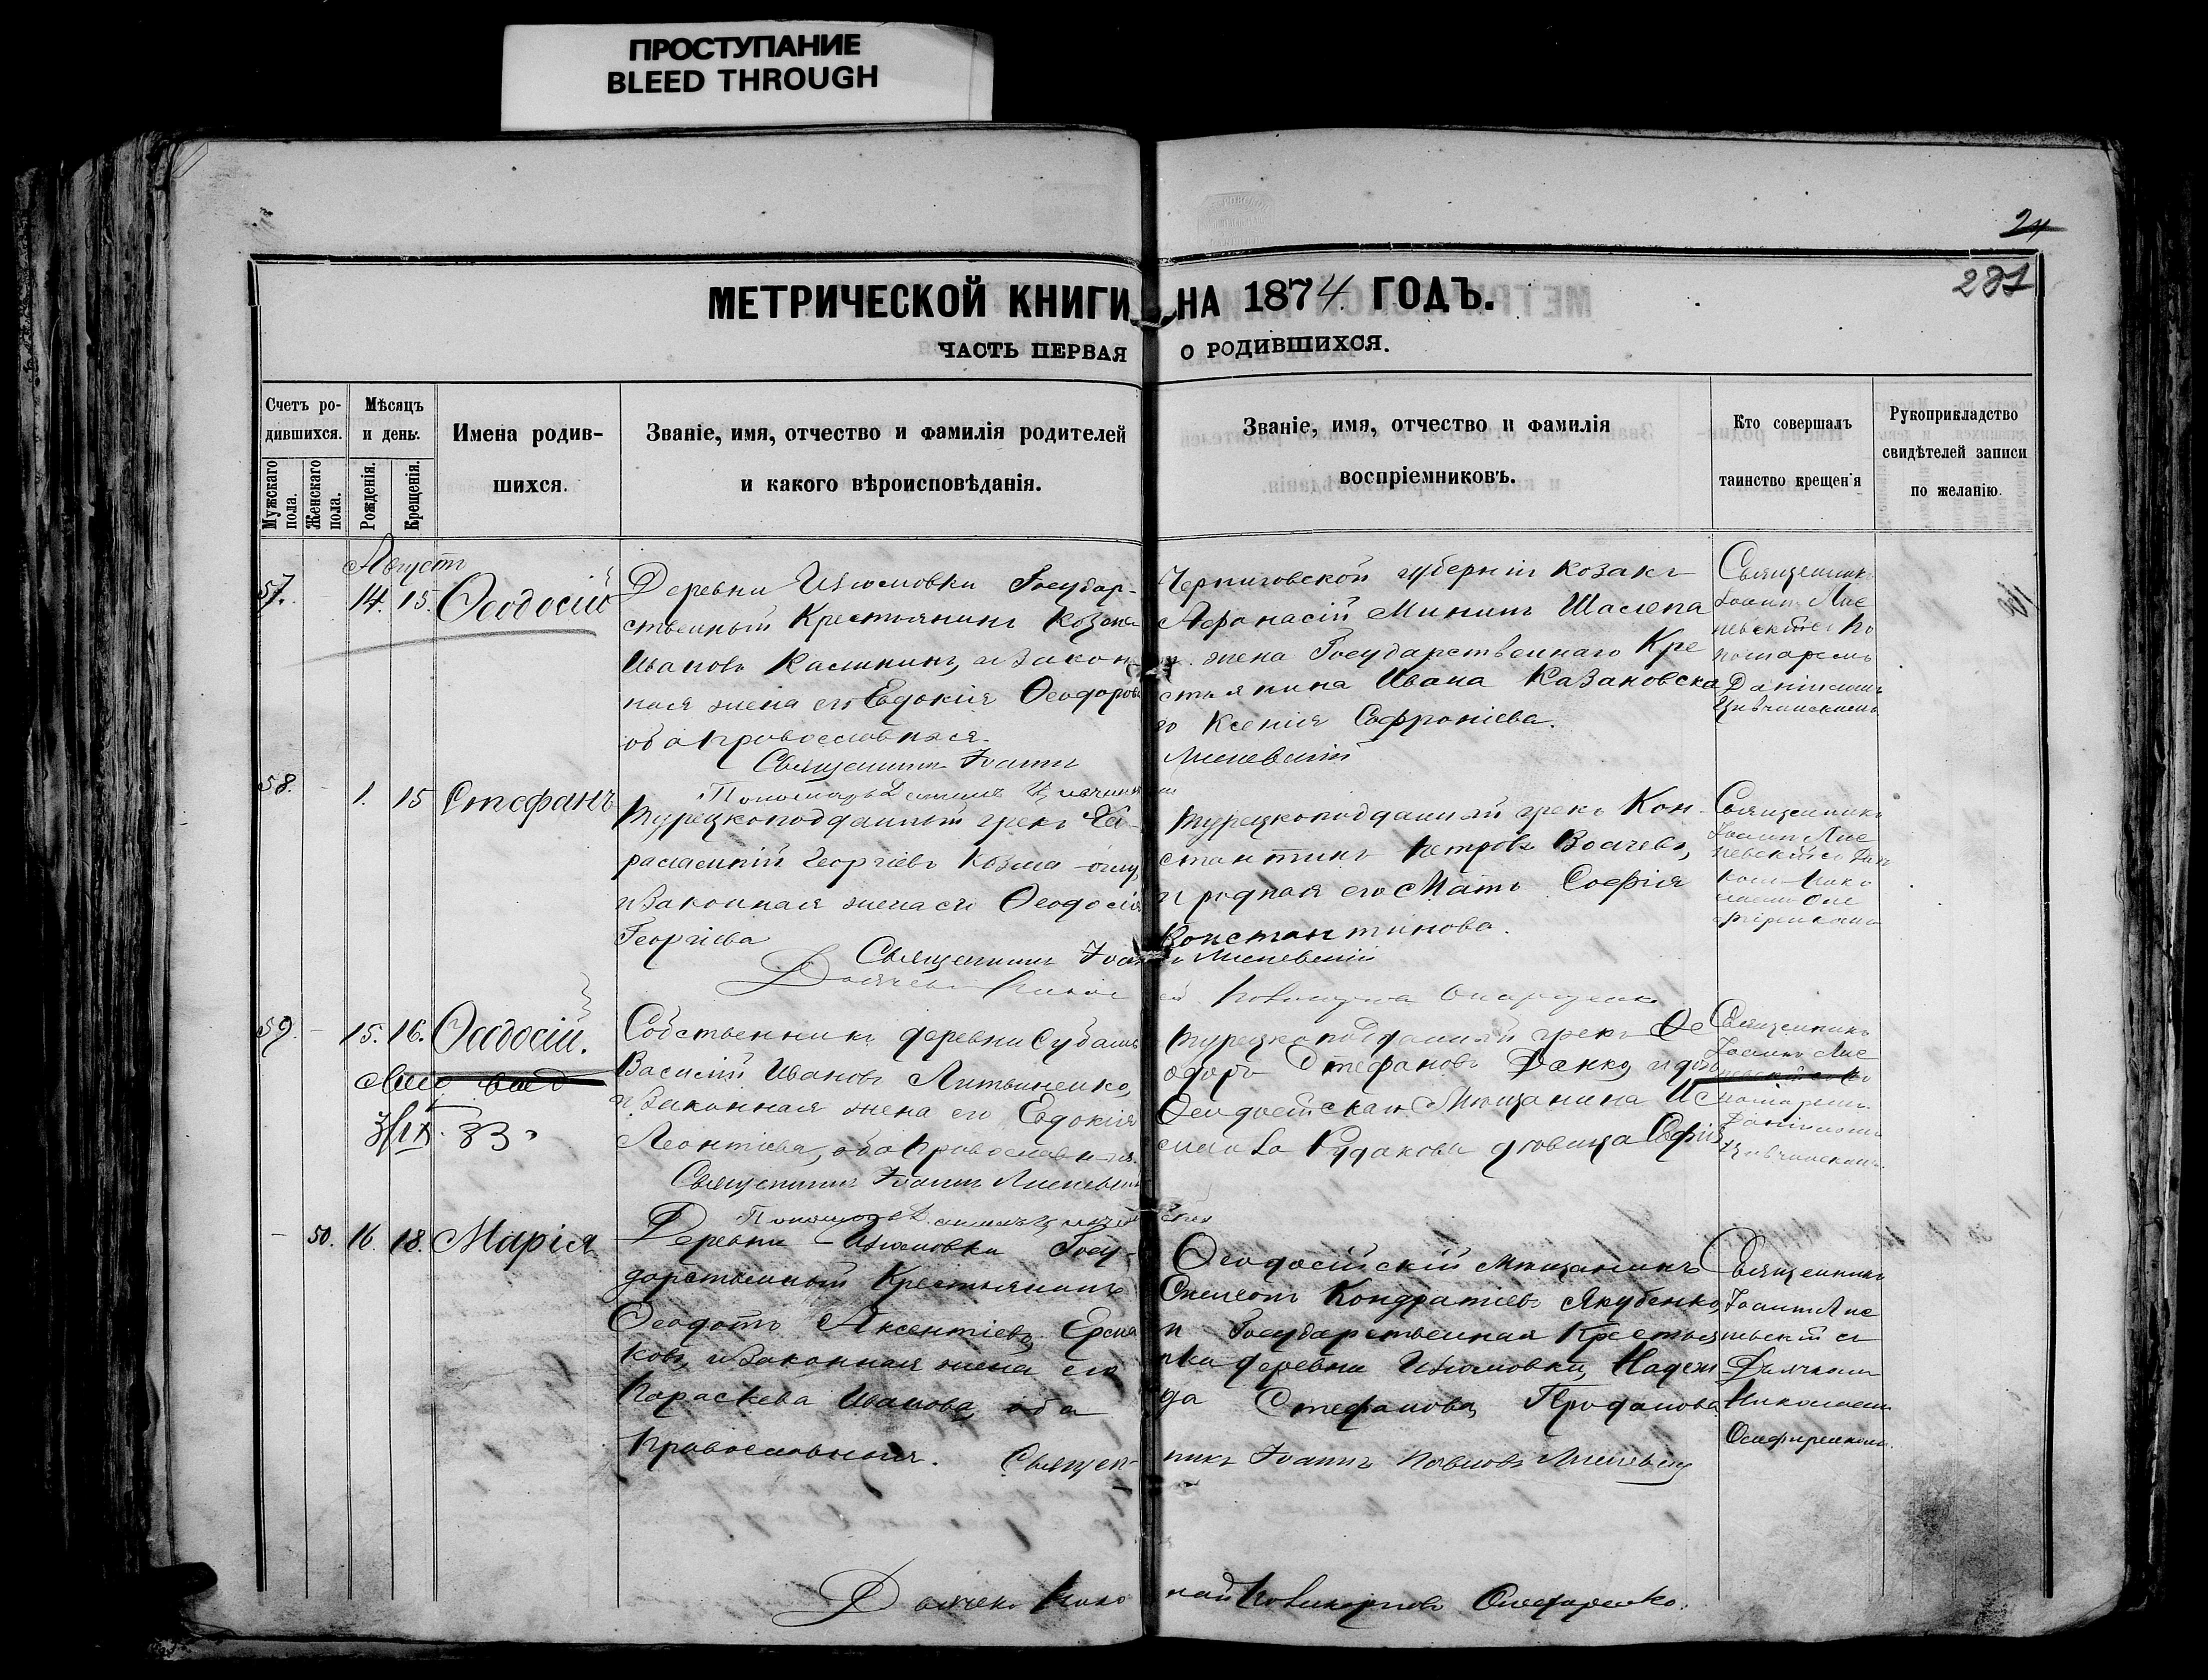 ПРОСТУПАНИЕ
BLEED THROUGH
24
281
МЕТРИЧЕСКОЙ КНИГИ НА 1874 ГОДЪ.
ЧАСТЬ ПЕРВАЯ О РОДИВШИХСЯ.
Счетъ ро-
дившихся.
Мужскаго пола.
Женскаго пола.
Мѣсяцъ
и день.
Рожденія.
Крещенія.
Имена родив-
шихся.
Званіе, имя, отчество и фамилія родителей
и какого вѣроисповѣданія.
Званіе, имя, отчество и фамилія
воспріемниковъ.
Кто совершалъ
таинство крещенія
Рукоприкладство
свидѣтелей записи
по желанію.
Августъ
57. 14. 15. Ѳеодосій
Деревни Изюмовки Государ-
ственный Крестьянинъ Козма
Ивановъ Калининъ, и закон-
ная жена его Евдокія Ѳеодорова
оба православныя.
Священникъ Іоаннъ
Черниговской губерніи козакъ
Афанасій Мининъ Шаслепа
и жена Государственнаго Кре
стьянина Ивана Казановска
го Ксенія Софроніева.
Лисневскій
Священникъ
Іоаннъ Лис
невскій съ По
номаремъ
Даніиломъ
58. 1. 15 Стефанъ
Турецкоподданный грекъ Ха-
ралампій Георгіевъ Козма-оглу,
и законная жена его Ѳеодосія
Георгіева
Священникъ Іоаннъ
Турецкоподданный грекъ Кон-
стантинъ Петровъ
и родная его Мать Софія
Константинова.
Лисневскій
Священникъ
Іоаннъ Лис
невскій съ Дьяч
комъ Нико
лаемъ
59. 15. 16. Ѳеодосій.
3/IX 33
Собственникъ деревни Субашъ
Василій Ивановъ Литвиненко,
и законная жена его Евдокія
Леонтіева, оба православныя.
Священникъ Іоаннъ Лисневскій
Турецкоподданный грекъ Ѳе
одоръ Стефановъ Данко, и дочь
Ѳеодосійскаго Мѣщанина
Рудакова дѣвица Софія
Священникъ
Іоаннъ Лис
невскій съ По
номаремъ
Даніиломъ
50. 16. 18. Марія
Деревни Изюмовки Госу-
дарственный Крестьянинъ
Ѳеодотъ Аксентіевъ Ерма
ковъ, и законная жена его
Параскева Иванова, оба
православныя. Священ-
Ѳеодосійскій мѣщанинъ
Кондратіевъ Якубенко,
и Государственная Крестья
нка деревни Изюмовки, Надеж
да Стефанова, Проданова
никъ Іоаннъ Павловъ Лисневскій
Священникъ
Іоаннъ Лис
невскій съ
Дьячкомъ
Николаемъ
Дьячекъ Нико
лай